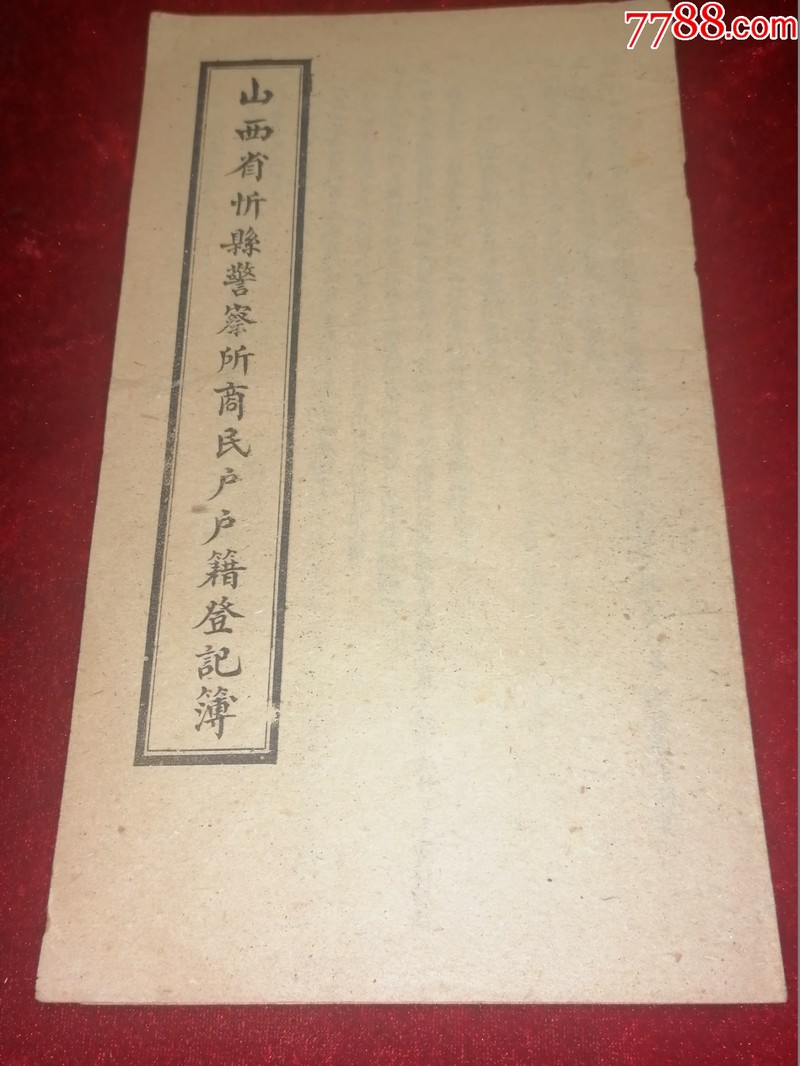 7788.com
山西省忻縣警察所商民户户籍登記簿